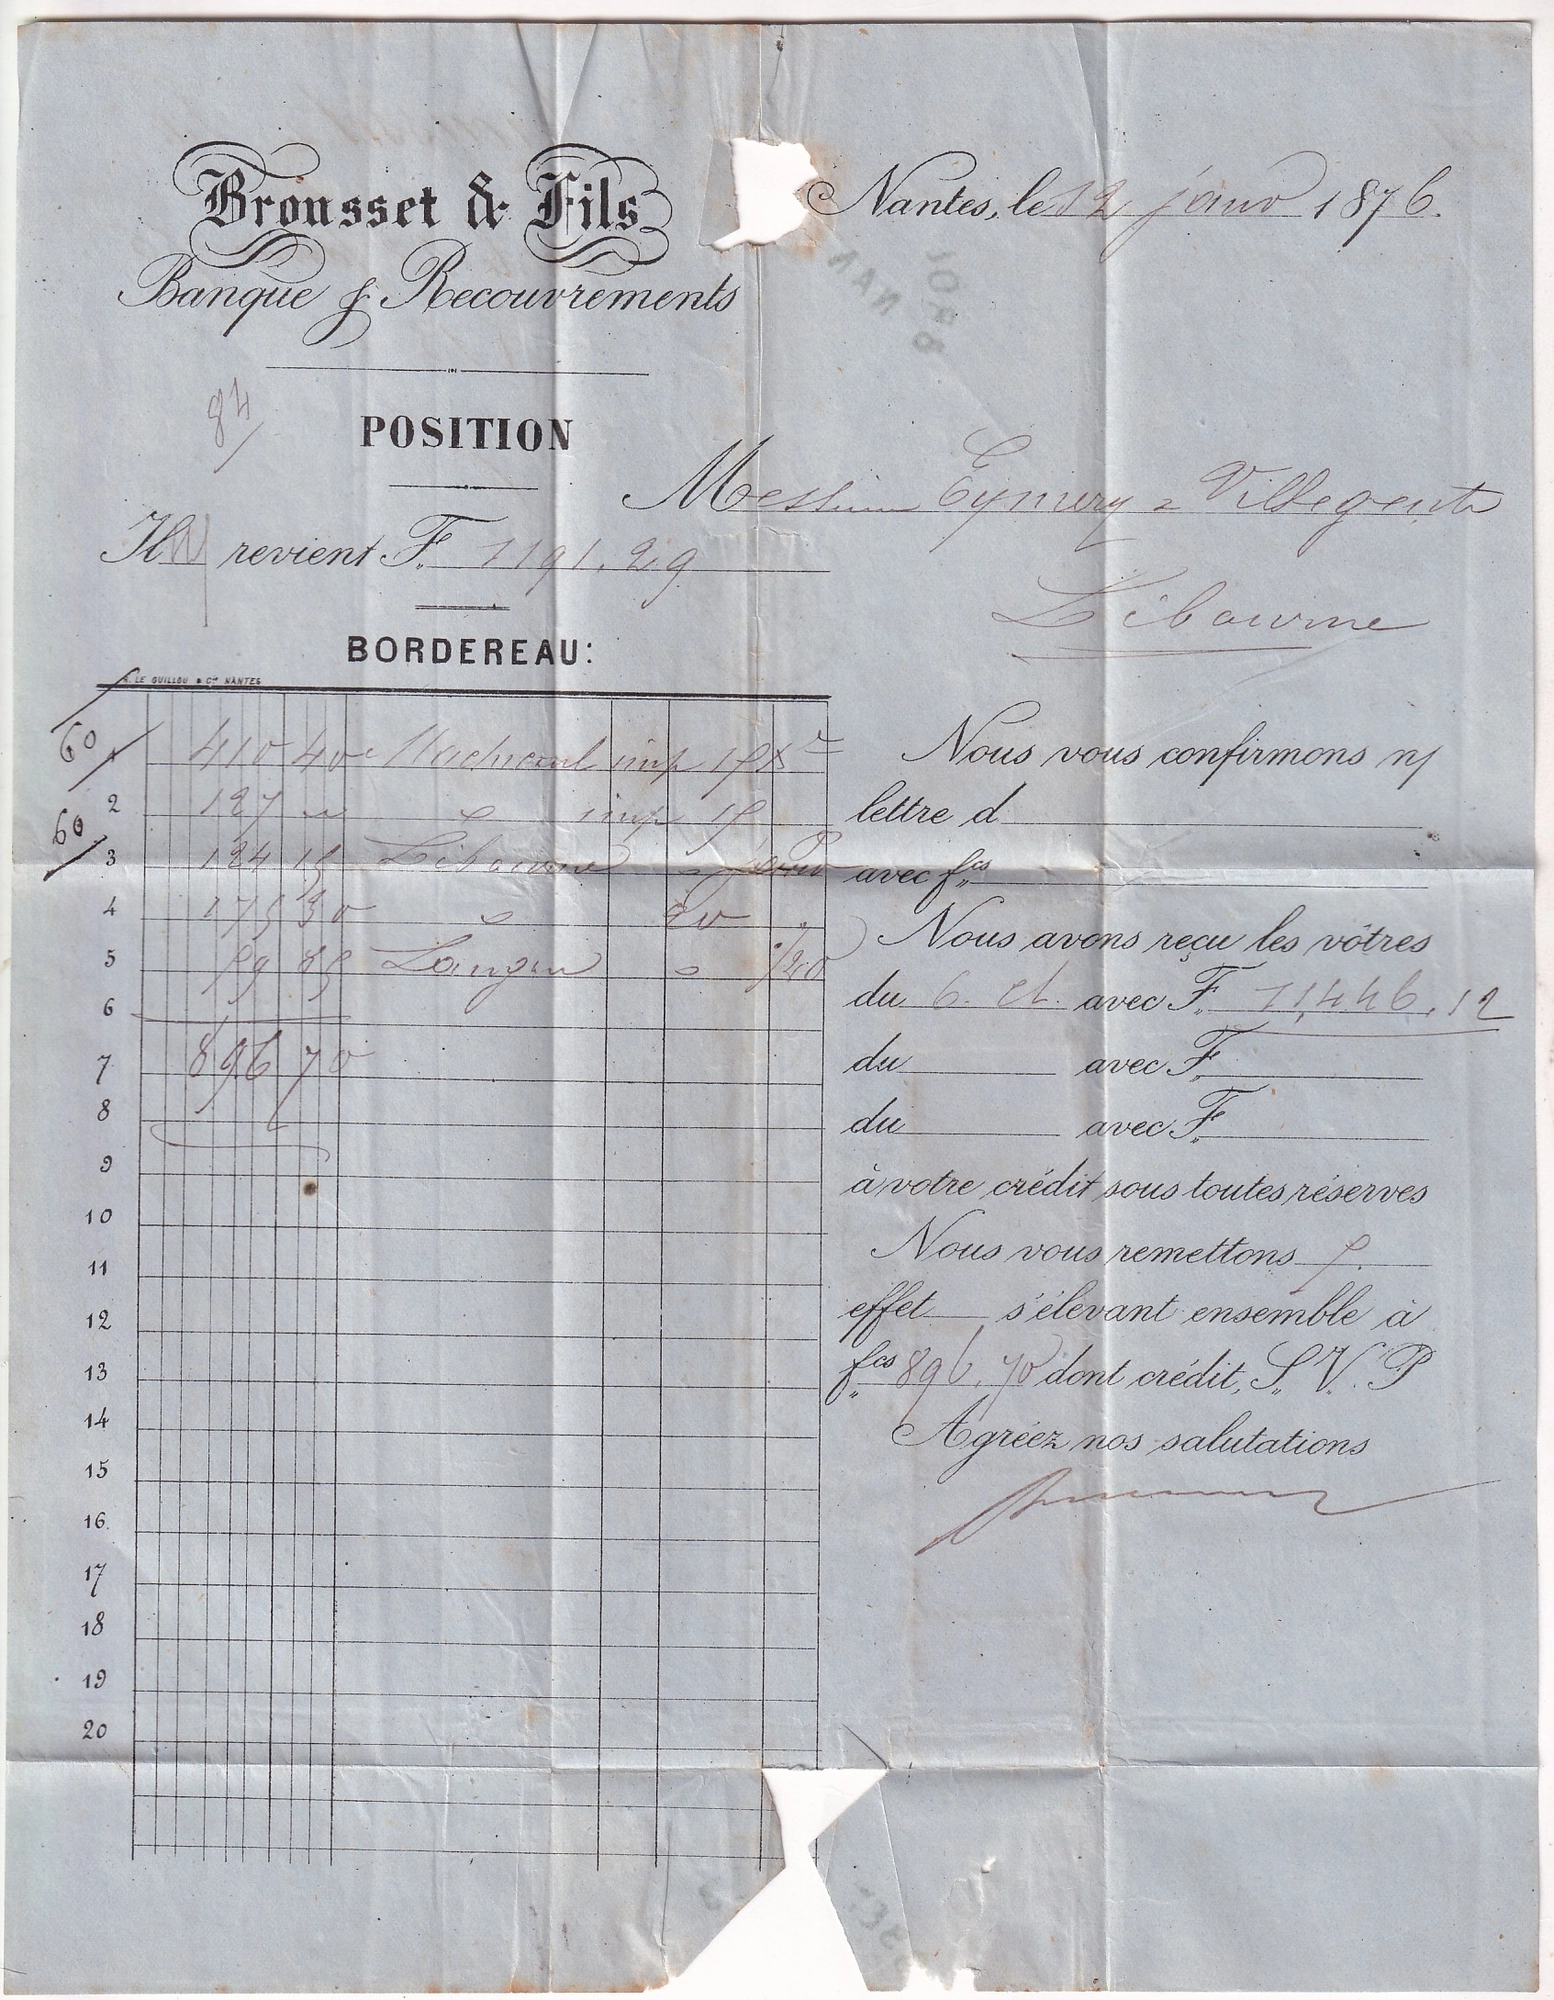 Brousset & Fils
Banque & Recouvrements
Nantes, le 12 janv 1876.
84
POSITION
Messieurs Eymery & Villegente
Libourne
Il revient F. 1191.29
BORDEREAU:
LE GUILLOU & Cie NANTES
60
1 410 40 imp 15
60
2 127 " " imp 15
3 124 15 Libourne
4 175 30 " 20
5 59 85 Langon " /20
6
7 896 70
8
9
10
11
12
13
14
15
16
17
18
19
20
Nous vous confirmons n/
lettre d
avec fcs
Nous avons reçu les vôtres
du 6. ct. avec F. 11,446.12
du avec F.
du avec F.
à votre crédit sous toutes réserves
Nous vous remettons 5.
effet s'élevant ensemble à
fcs 896,70 dont crédit, S. V. P
Agréez nos salutations